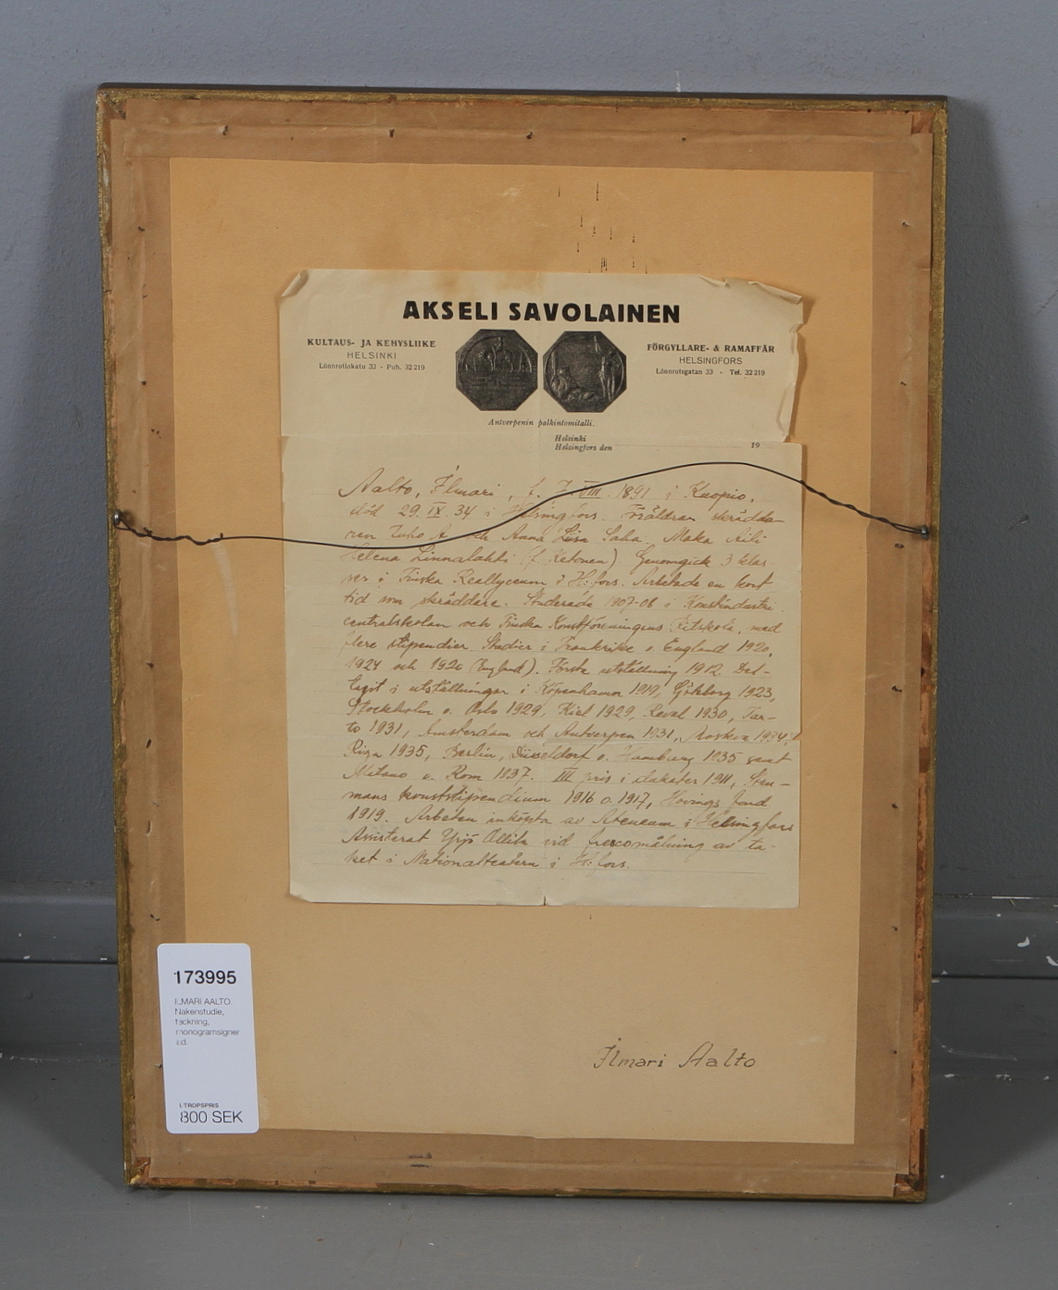 AKSELI SAVOLAINEN
KULTAUS- JA KEHYSLIIKE
HELSINKI
Lönnrotinkatu 33 - Puh. 32 219
FÖRGYLLARE- & RAMAFFÄR
HELSINGFORS
Lönnrotsgatan 33 - Tel. 32 219
Antverpenin palkintomitalli.
Helsinki
Helsingfors den 19
Aalto, Ilmari, f. 7. VIII. 1891 i Kuopio,
död 29. IX. 34 i Helsingfors. Föräldrar skrädda-
ren Juho A. Anna Lisa Saha. Maka Aili
Helena Linnalahti (f. Ketonen) Genomgick 3 klas
ser i Finska Reallyceum i H:fors. Arbetade en kort
tid som skräddare. Studerade 1907-08 i Konstindustri
centralskolan och Finska Konstföreningens Ritskola, med
flere stipendier. Studier i Frankrike o. England 1920,
1924 och 1926 (England). Första utställning 1912. Del-
tagit i utställningar i Köpenhamn 1919, Göteborg 1923,
Stockholm o. Oslo 1929, Kiel 1929, Reval 1930, Tar-
to 1931, Amsterdam och Antverpen 1931, Moskva 1934,
Riga 1935, Berlin, Düsseldorf o. Hamburg 1935 samt
Milano o. Rom 1937. III pris i plakater 1911,
mans konststipendium 1916 o. 1917, Hovings fond
1919. Arbeten inköpta av Ateneum i Helsingfors
Assisterat Yrjö Ollila vid frescomålning av ta-
ket i Nationalteatern i H:fors.
Ilmari Aalto
173995
ILMARI AALTO.
Nakenstudie,
teckning,
monogramsigner
ad.
UTROPSPRIS
800 SEK